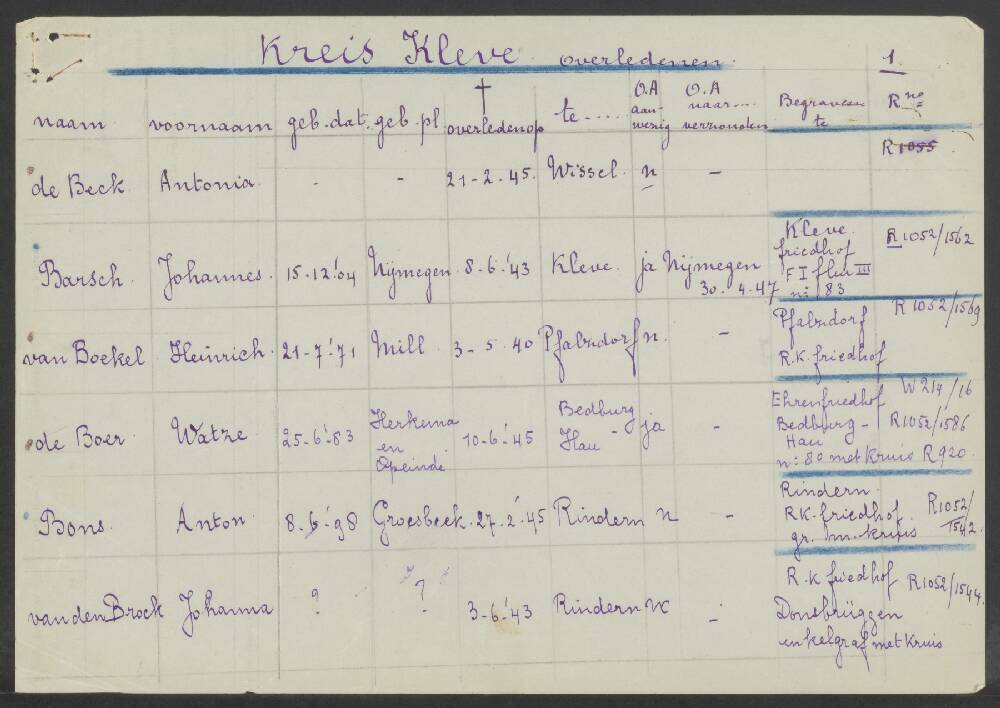 Kreis Kleve overledenen. 1.
naam voornaam geb. dat. geb. pl. † overleden op te ..... O.A aanwezig O.A naar.... verzonden Begraven te R no
de Beck. Antonia. - - 21-2-45. Wissel. n - R 1055
Barsch. Johannes. 15-12-'04 Nijmegen 8-6-'43 Kleve. ja Nijmegen 30.4-47 Kleve. friedhof F I flur III n: 83 R 1052/1562
van Boekel Heinrich. 21-7-'71 Mill. 3-5.40 Pfalzdorf n. - Pfalzdorf R.K. friedhof R 1052/1569
de Boer. Watze. 25-6-'83 Herkema en Opeinde 10-6-'45 Bedburg-Hau ja - Ehrenfriedhof Bedburg-Hau n: 80 met kruis W 214/16 R1052/1586 R 920.
Bons. Anton. 8-'98 Groesbeek. 27.2-'45 Rindern n - Rindern. RK-friedhof. gr. m. kruis R1052/1542.
van den Brock Johanna ? ? 3-6-'43 Rindern n - R.K friedhof Donsbrüggen enkelgraf met Kruis R1052/1544.